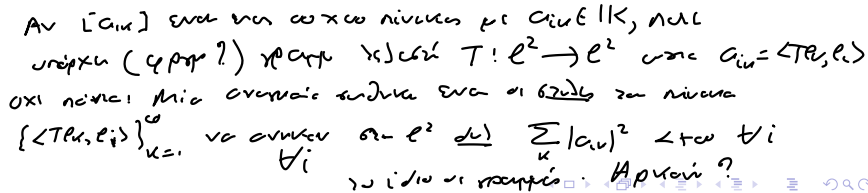 Αν [a_{ik}] είναι ένας ∞×∞ πίνακας με a_{ik} ∈ 𝕂, πότε
υπάρχει (φραγμ?) γραμμ. T: ℓ² → ℓ² ώστε a_{ik} = <Te_k, e_i>
Όχι πάντα! Μια αναγκαία συνθήκη είναι οι στήλες του πίνακα
{<Te_k, e_i>}_{k=1}^∞ να ανήκουν στον ℓ² δηλ. ∑_k |a_{ik}|² < +∞ ∀i
∀i
το ίδιο οι γραμμές. Αρκεί ?